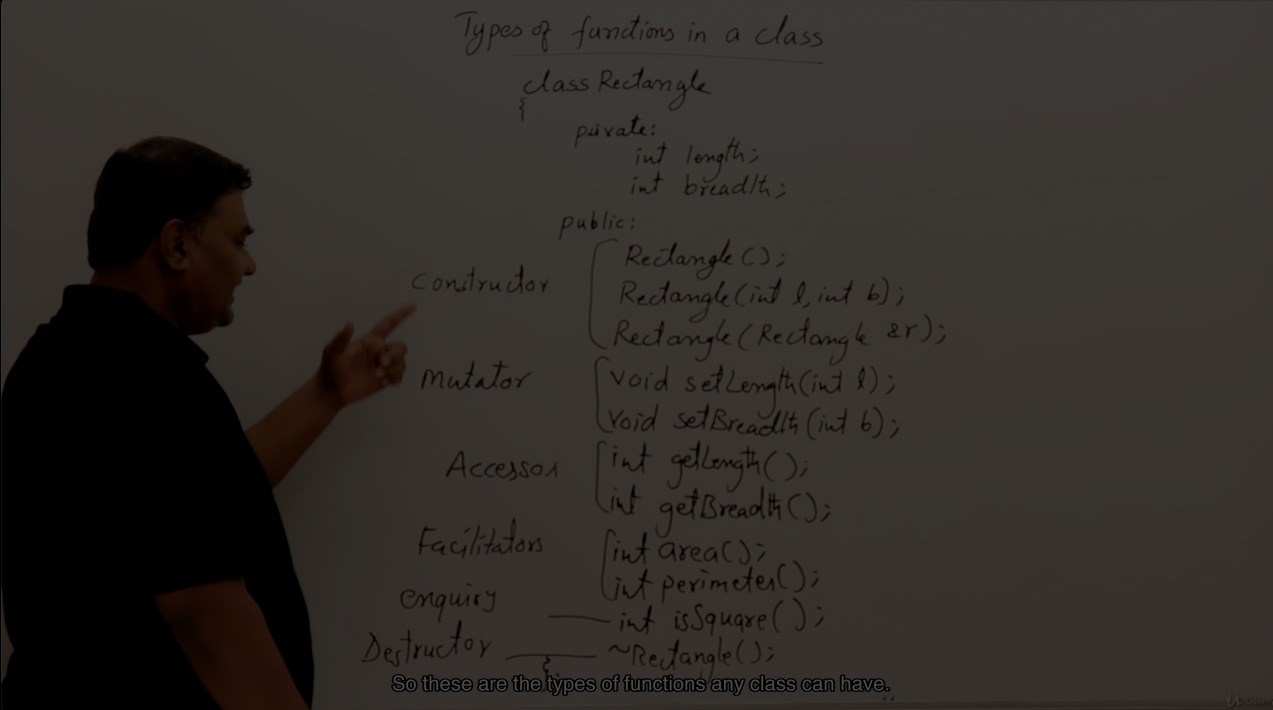 Types of functions in a class
class Rectangle
{
private:
int length;
int breadth;
public:
Constructor
Rectangle();
Rectangle(int l, int b);
Rectangle(Rectangle &r);
Mutator
void setLength(int l);
void setBreadth(int b);
Accessor
int getLength();
int getBreadth();
Facilitators
int area();
int perimeter();
enquiry
int isSquare();
Destructor
~Rectangle();
So these are the types of functions any class can have.